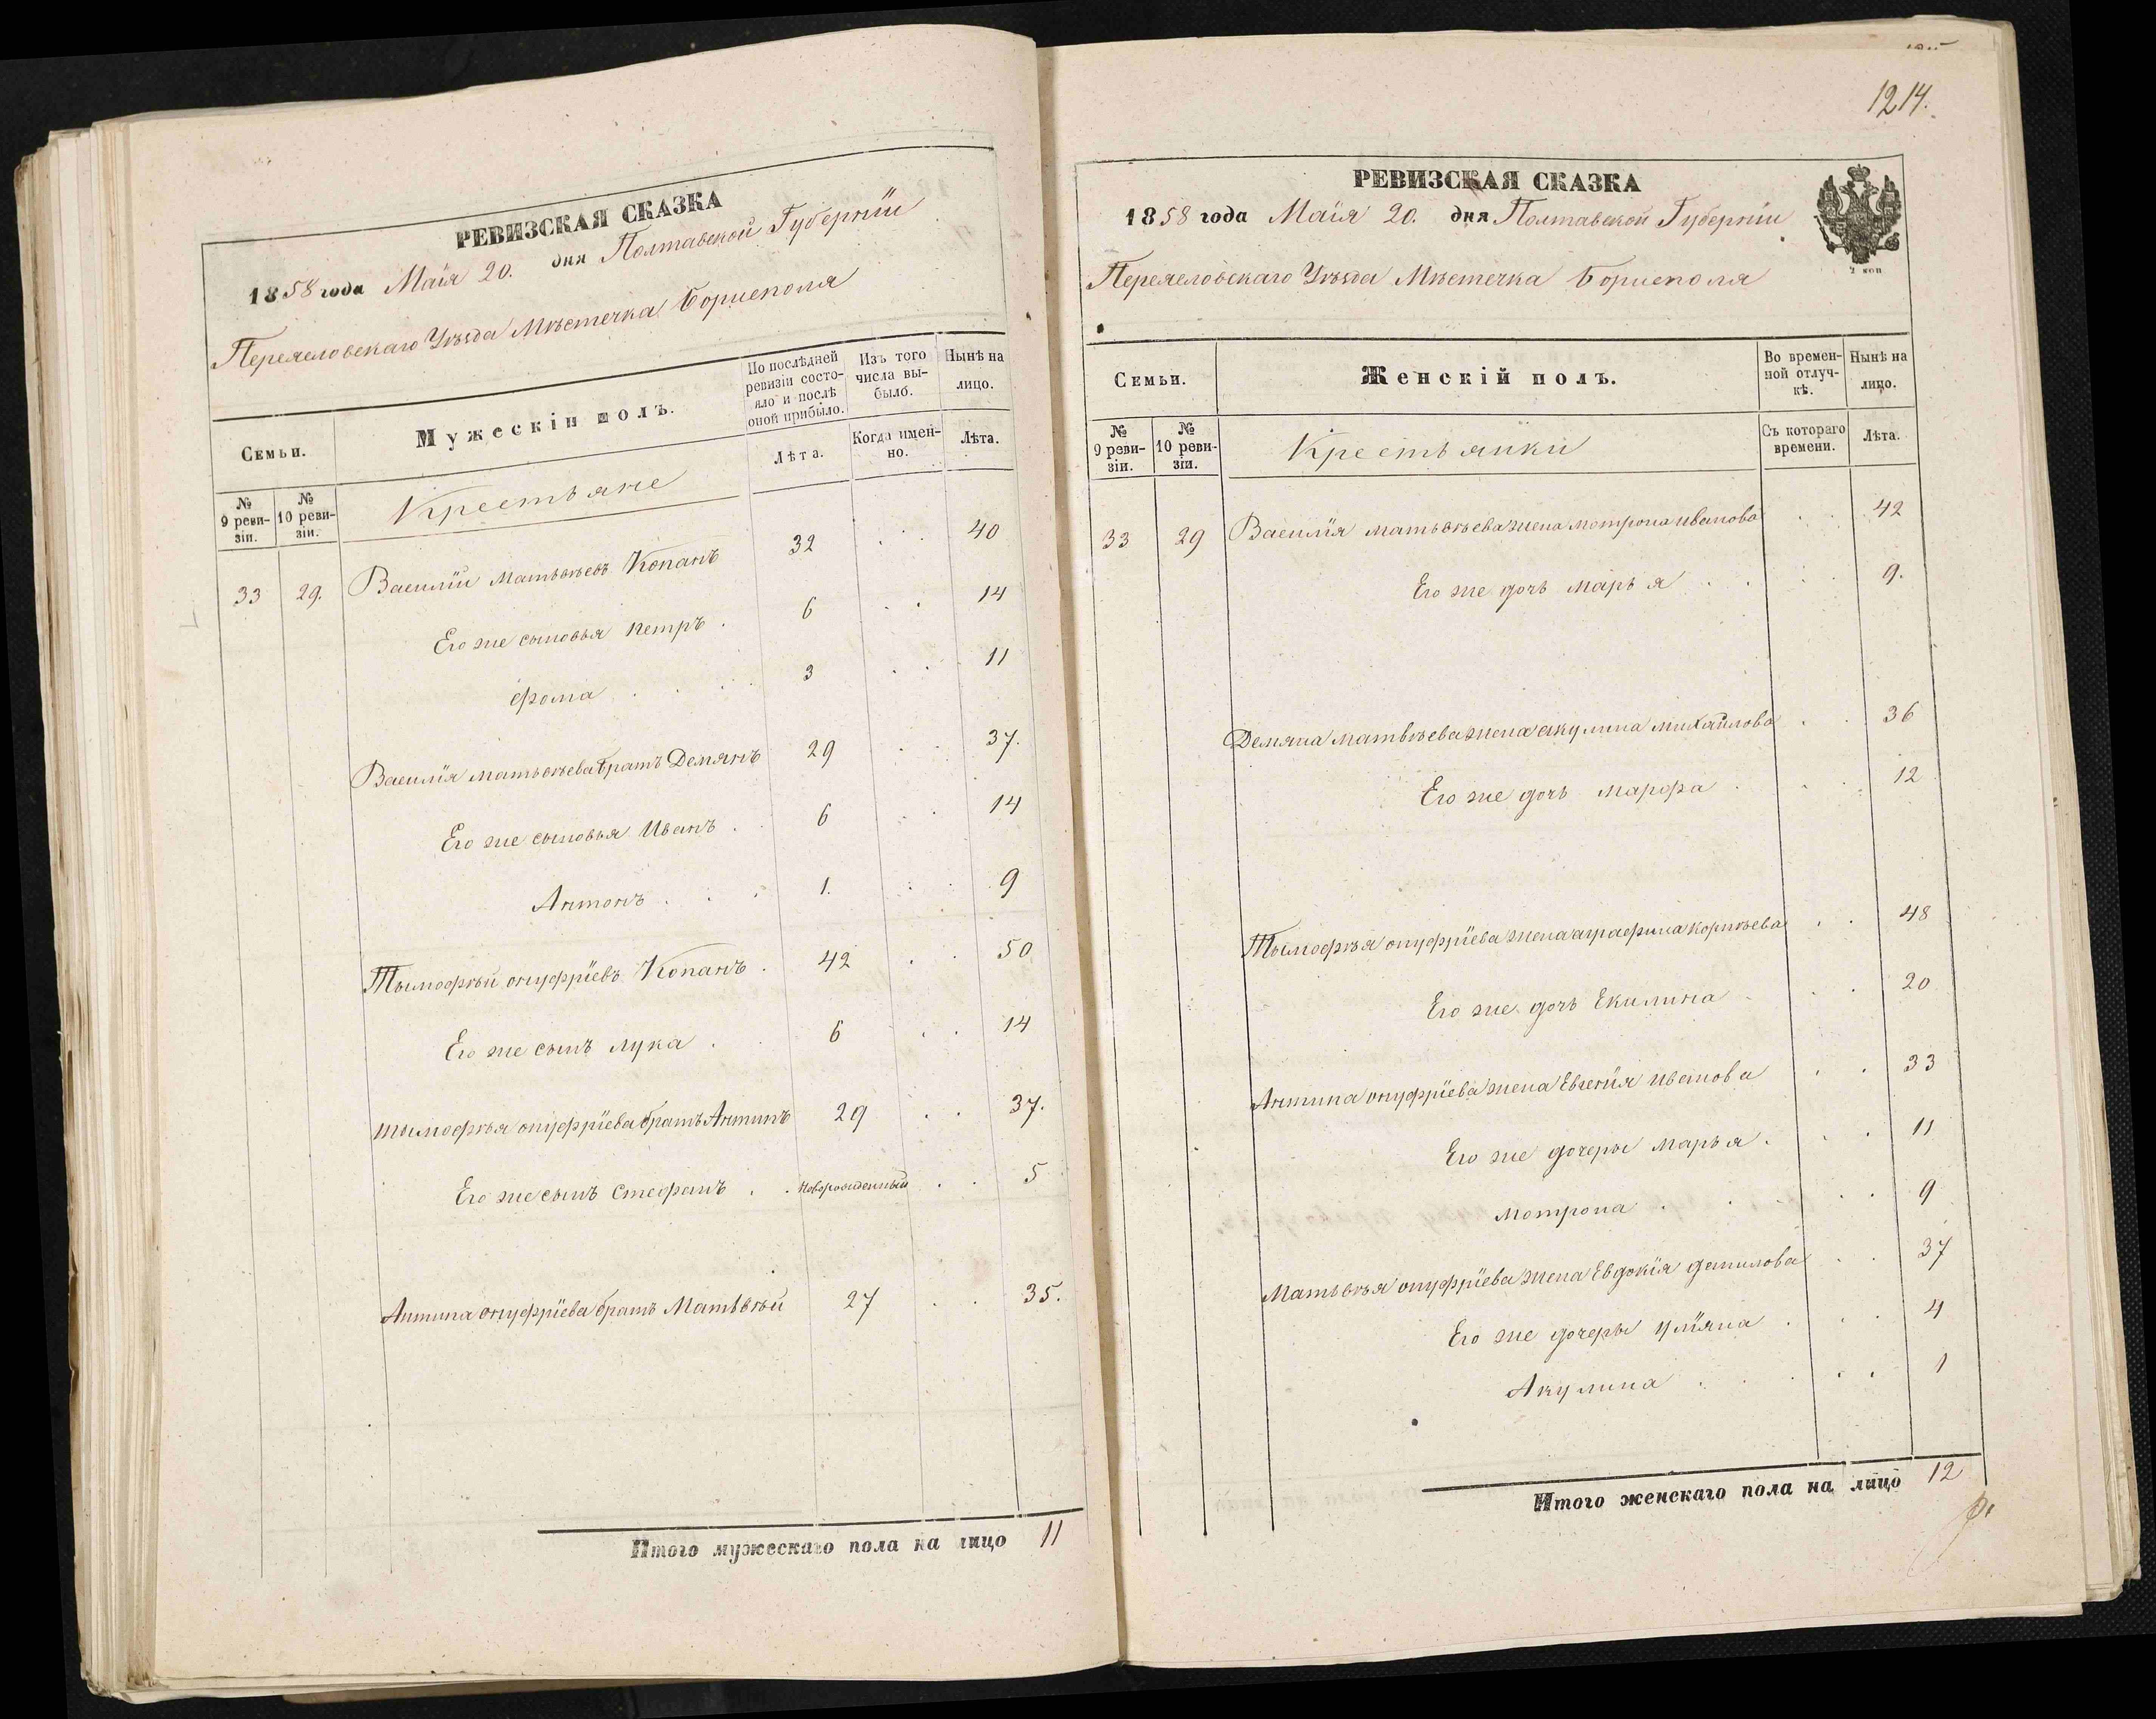 РЕВИЗСКАЯ СКАЗКА
1858 года Маія 20. дня Полтавской Губерніи
Переяеловскаго Уѣзда Мѣстечка Борисполя
Семьи.
Мужескій полъ.
По послѣдней ревизіи состояло и послѣ оной прибыло.
Изъ того числа выбыло.
Нынѣ на лицо.
№ 9 ревизіи.
№ 10 ревизіи.
Крестьяне
Лѣта.
Когда именно.
Лѣта.
33 29. Василій Матьвѣевъ Копанъ 32 . . 40
Его же сыновья петръ . 6 . . 14
фома . . . 3 . . 11
Василія матьвѣева братъ Демянъ 29 . . 37.
Его же сыновья Иванъ . . 6 . . 14
Антонъ . . . 1. . . 9
Тымофѣй онуфріевъ Копанъ . 42 . . 50
Его же сынъ лука . . 6 . . 14
тымофѣя онуфріева братъ Антипъ 29 . . 37.
Его же сынъ стефанъ . . новорожденный . . 5
Антипа онуфріева братъ Матьвѣй 27 . . 35.
Итого мужескаго пола на лицо 11
1214.
РЕВИЗСКАЯ СКАЗКА
1858 года Маія 20. дня Полтавской Губерніи
2 коп
Переяеловскаго Уѣзда Мѣстечка Борисполя
Семьи.
Женскій полъ.
Во временной отлучкѣ.
Нынѣ на лицо.
№ 9 ревизіи.
№ 10 ревизіи.
Крестьянки
Съ котораго времени.
Лѣта.
33 29 Василія матьвѣева жена мотрона иванова . . 42
Его же дочь марья . . . . 9.
Демяна матвѣева жена акулина михайлова . . 36
Его же дочь марфа . . . 12
Тымофѣя онуфріева жена аграфина корнѣева . . 48
Его же дочь Екилина . . . 20
Антипа онуфріева жена Евгенія иванова . . 33
Его же дочеры марья . . . 11
мотрона . . . . 9
Матьвѣя онуфріева жена Евдокія данилова . . 37
Его же дочеры уліяна . . . 4
Акулина . . . . 1
Итого женскаго пола на лицо 12